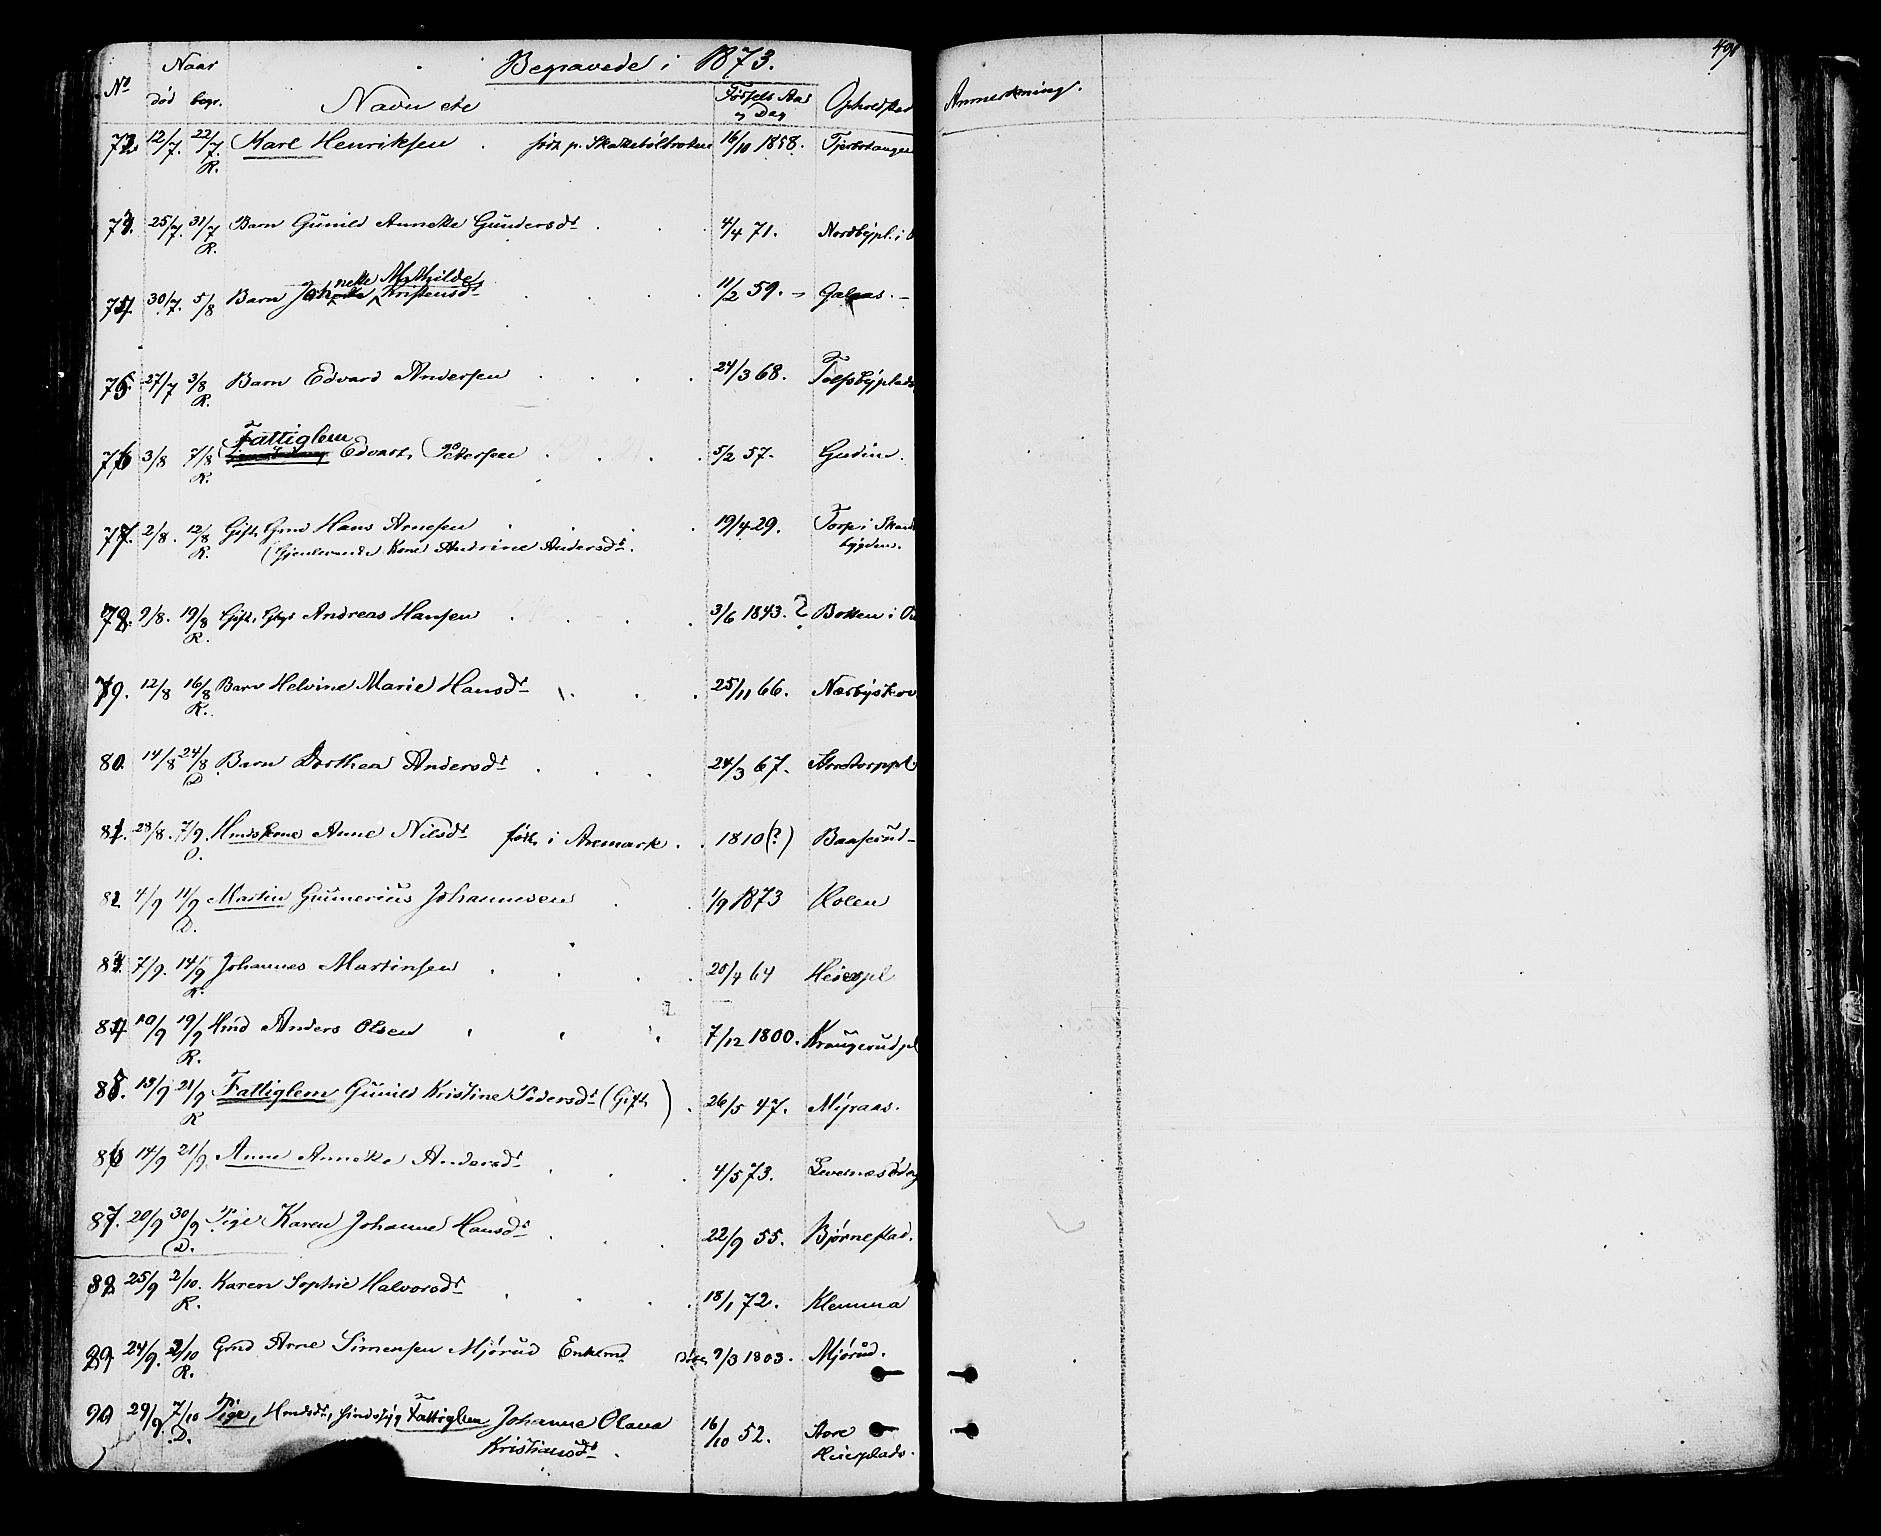 Begravede i 1873.
No Naar død begr. Navn etc Fødsels Aar og Dag Opholdsted Anmerkning.
72. 12/7. 22/7. R. Karl Henriksen 16/10 1858.
73. 25/7. 31/7 R. Barn Gunild Annette Gundersdt 4/4 71. Nordbypl. i
nette Mathilde
74. 30/7. 5/8 Barn Kristensdt 11/2 59.
75. 27/7 3/8 R. Barn Edvard Andersen 24/3 68.
Fattiglem
76 3/8 7/8 R. Edvart Petersen 5/2 57. Gudim.
77. 2/8. 12/8 R. Gift Gmd Hans Arnesen 19/4 29. Torp i
(Gjenlevende Kone Andrine Andersdt. bygden.
78. 9/8. 19/8 R. Gift Andreas Hansen 3/6 1843. ? Botten i
79. 12/8 16/8 R. Barn Helvine Marie Hansdt 25/11 66.
80. 14/8 24/8 D. Barn Dorthea Andersdt 24/3 67.
81. 28/8. 7/9. O. Hmdskone Anne Nilsdt født i Aremark 1810 (?) Baaserud
82 4/9 11/9 D. Martin Gunnerius Johannesen 1/9 1873 Holen
83. 7/9. 14/9 R. Johannes Martinsen 20/4 64 Heierpl
84 10/9 19/9 R. Hmd Anders Olsen 7/12 1800. Krongerudpl
85. 13/9 21/9 R Fattiglem Gunild Kristine Pedersdt (Gift) 26/5 47. Myraas.
86 14/9 21/9. Anne Annette Andersdt 4/5 73.
87. 20/9 30/9 D. Pige Karen Johanne Hansdt 22/9 55. Bjørnestad.
88 25/9 2/10. R. Karen Sophie Halvorsdt 18/1 72. Klemma
89 24/9. 2/10 R. Gmd Arne Simensen Mjørud Enkemd 9/3 1803. Mjørud.
90 29/9. 7/10 D. Pige, Hmdsdt, sindssyg Fattiglem Johanne Olava 16/10 52. Aore
Kristiansdt. Heierplads.